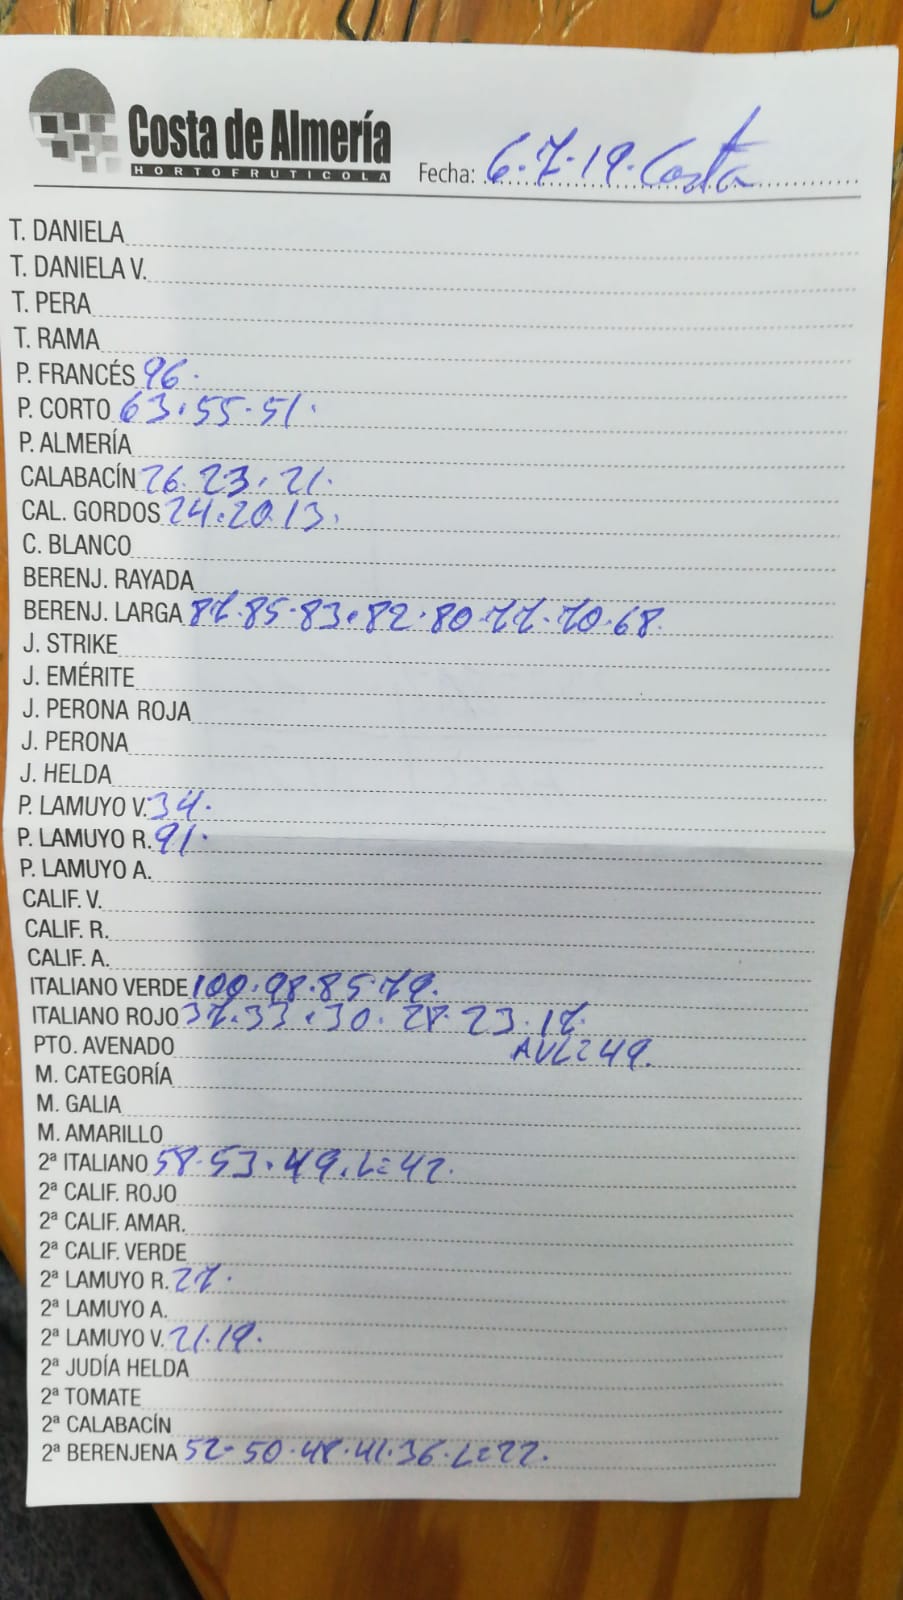 Costa de Almería
HORTOFRUTICOLA
Fecha: 6.7.19. Costa
T. DANIELA
T. DANIELA V.
T. PERA
T. RAMA
P. FRANCÉS 96.
P. CORTO 63.55.51.
P. ALMERÍA
CALABACÍN 26.23.21.
CAL. GORDOS 24.20.13.
C. BLANCO
BERENJ. RAYADA
BERENJ. LARGA 87.85.83.82.80.77.70.68.
J. STRIKE
J. EMÉRITE
J. PERONA ROJA
J. PERONA
J. HELDA
P. LAMUYO V. 34.
P. LAMUYO R. 91.
P. LAMUYO A.
CALIF. V.
CALIF. R.
CALIF. A.
ITALIANO VERDE 100.98.85.79.
ITALIANO ROJO 37.33.30.28.23.17.
PTO. AVENADO AVL=49.
M. CATEGORÍA
M. GALIA
M. AMARILLO
2ª ITALIANO 58.53.49.L=42.
2ª CALIF. ROJO
2ª CALIF. AMAR.
2ª CALIF. VERDE
2ª LAMUYO R. 27.
2ª LAMUYO A.
2ª LAMUYO V. 21.19.
2ª JUDÍA HELDA
2ª TOMATE
2ª CALABACÍN
2ª BERENJENA 52-50.48.41.36.L=22.